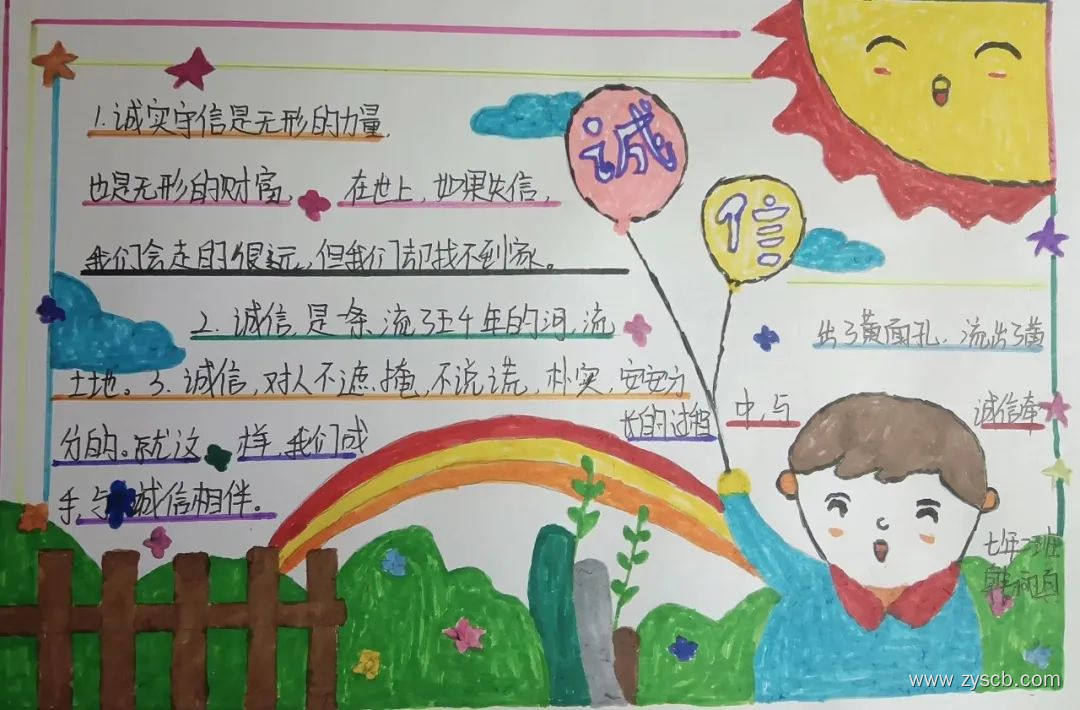 诚
信
1.诚实守信是无形的力量,
也是无形的财富, 在世上,如果失信,
我们会走的很远,但我们却找不到家。
2.诚信,是一条流了五千年的河,流
出了黄面孔,流出了黄
土地。3.诚信,对人不遮掩,不说谎,朴实,安安分
分的。就这 样,我们成
长的过程 中,与 诚信牵
手,与 诚信相伴。
七年一班
www.zyscb.com